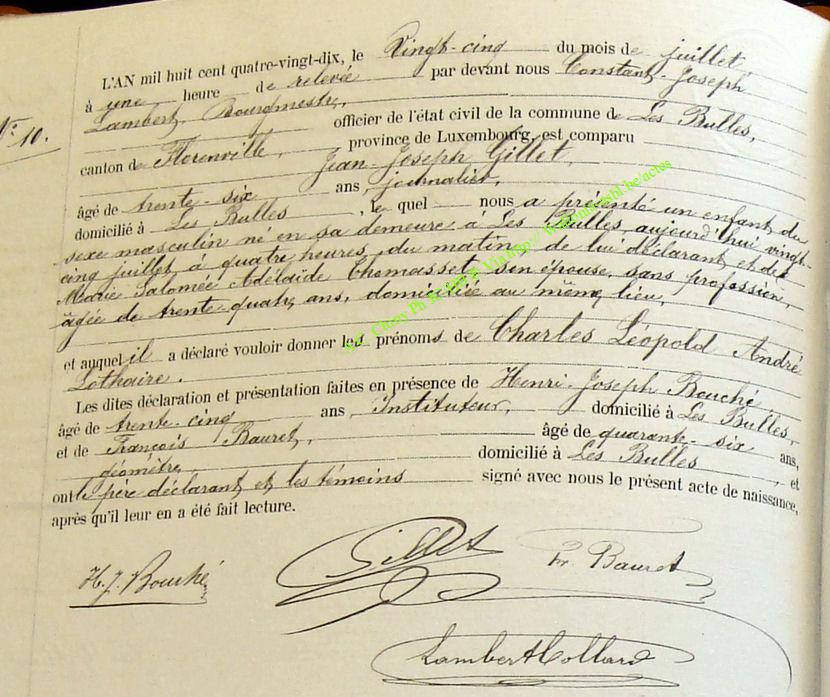 L'AN mil huit cent quatre-vingt-dix, le Vingt-cinq du mois de juillet,
à une heure de relevée par devant nous Constant-Joseph
Lambert, Bourgmestre,
officier de l'état civil de la commune de Les Bulles,
N° 10.
canton de Florenville, province de Luxembourg, est comparu
Jean-Joseph Gillet,
âgé de trente-six ans, journalier,
domicilié à Les Bulles, le quel nous a présenté un enfant du
sexe masculin né en sa demeure à Les Bulles, aujourd'hui vingt-
cinq juillet à quatre heures du matin, de lui déclarant et de
Marie Salomée Adélaïde Thomasset son épouse, sans profession,
âgée de trente-quatre ans, domiciliée au même lieu,
et auquel il a déclaré vouloir donner les prénoms de Charles Léopold André
Lothaire.
Les dites déclaration et présentation faites en présence de Henri-Joseph Bouché
âgé de trente-cinq ans, Instituteur, domicilié à Les Bulles,
et de François Bauret, âgé de quarante-six ans,
géomètre, domicilié à Les Bulles, et
ont le père déclarant et les témoins signé avec nous le présent acte de naissance,
après qu'il leur en a été fait lecture.
H. J. Bouché
Gillet
Fr Bauret
Lambert Collard